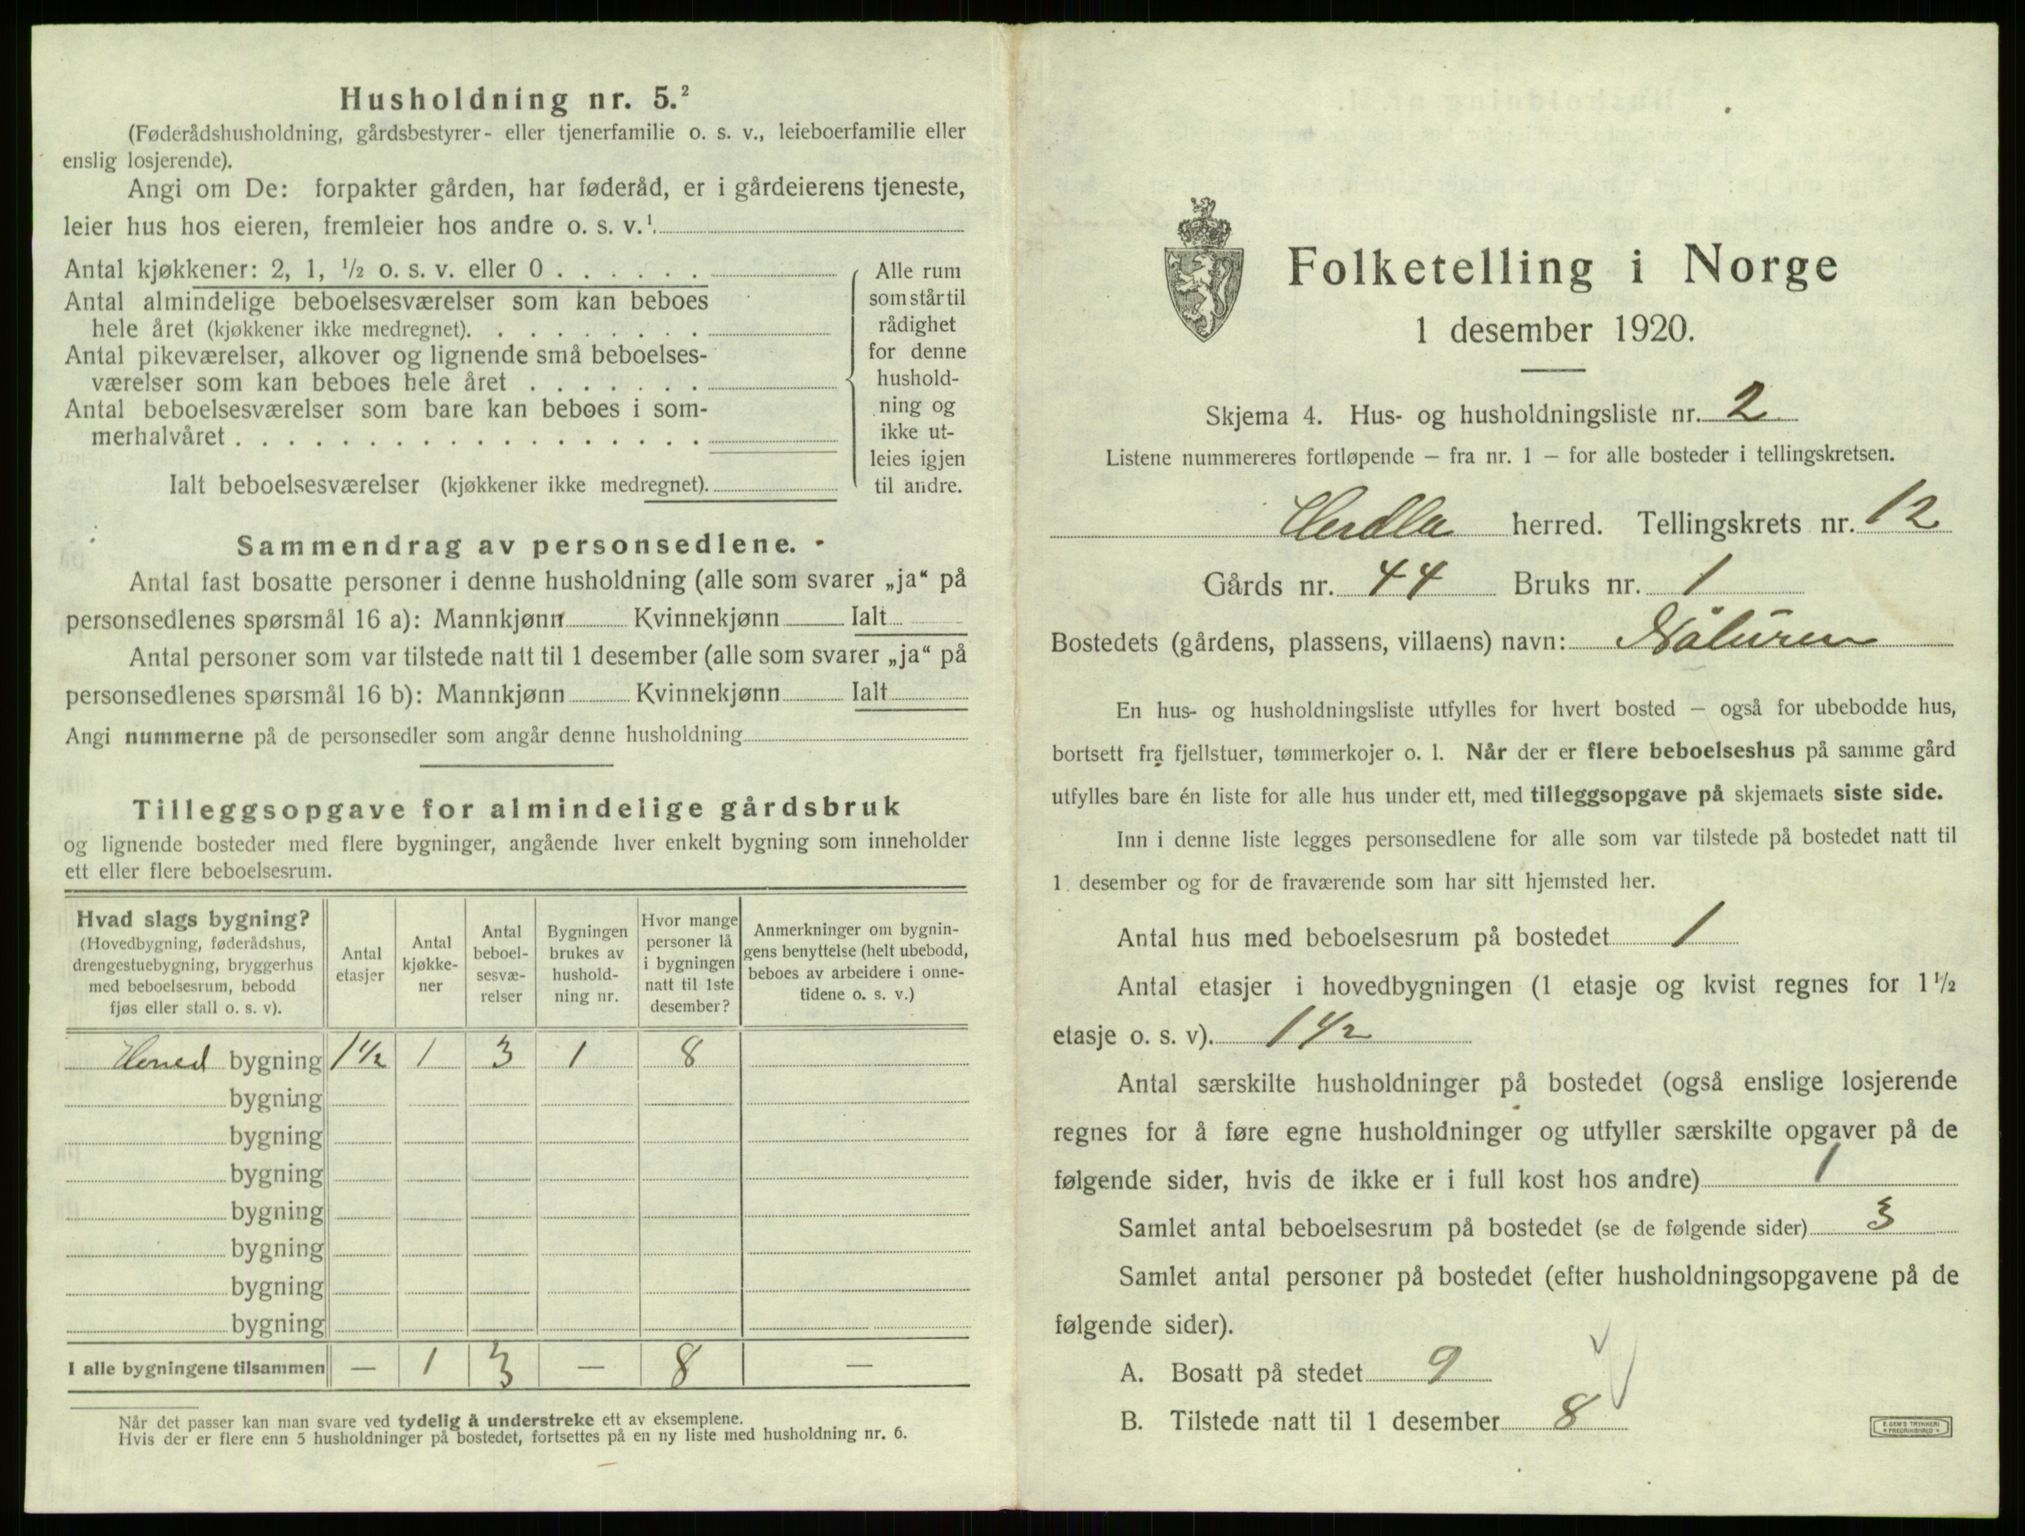 Husholdning nr. 5.²
(Føderådshusholdning, gårdsbestyrer- eller tjenerfamilie o. s. v., leieboerfamilie eller
enslig losjerende).
Angi om De: forpakter gården, har føderåd, er i gårdeierens tjeneste,
leier hus hos eieren, fremleier hos andre o. s. v.¹
Antal kjøkkener: 2, 1, ½ o. s. v. eller 0 . . . . . .
Antal almindelige beboelsesværelser som kan beboes
hele året (kjøkkener ikke medregnet). . . . . . . . .
Antal pikeværelser, alkover og lignende små beboelses-
værelser som kan beboes hele året . . . . . . .
Antal beboelsesværelser som bare kan beboes i som-
merhalvåret . . . . . . . . . . . . . . . . . .
Ialt beboelsesværelser (kjøkkener ikke medregnet).
Alle rum
som står til
rådighet
for denne
hushold-
ning og
ikke ut-
leies igjen
til andre.
Sammendrag av personsedlene.
Antal fast bosatte personer i denne husholdning (alle som svarer „ja“ på
personsedlenes spørsmål 16 a): Mannkjønn Kvinnekjønn Ialt
Antal personer som var tilstede natt til 1 desember (alle som svarer „ja“ på
personsedlenes spørsmål 16 b): Mannkjønn Kvinnekjønn Ialt
Angi nummerne på de personsedler som angår denne husholdning
Tilleggsopgave for almindelige gårdsbruk
og lignende bosteder med flere bygninger, angående hver enkelt bygning som inneholder
ett eller flere beboelsesrum.
Hvad slags bygning?
(Hovedbygning, føderådshus,
drengestuebygning, bryggerhus
med beboelsesrum, bebodd
fjøs eller stall o. s. v).
Antal
etasjer
Antal
kjøkke-
ner
Antal
beboel-
sesvæ-
relser
Bygningen
brukes av
hushold-
ning nr.
Hvor mange
personer lå
i bygningen
natt til 1ste
desember?
Anmerkninger om bygnin-
gens benyttelse (helt ubebodd,
beboes av arbeidere i onne-
tidene o. s. v.)
bygning 1½ 1 3 1 8
bygning
bygning
bygning
bygning
bygning
bygning
bygning
I alle bygningene tilsammen — 1 3 — 8 —
Når det passer kan man svare ved tydelig å understreke ett av eksemplene.
Hvis der er flere enn 5 husholdninger på bostedet, fortsettes på en ny liste med husholdning nr. 6.
Folketelling i Norge
1 desember 1920.
Skjema 4. Hus- og husholdningsliste nr. 2
Listene nummereres fortløpende – fra nr. 1 – for alle bosteder i tellingskretsen.
Herdla herred. Tellingskrets nr. 12
Gårds nr. 44 Bruks nr. 1
Bostedets (gårdens, plassens, villaens) navn:
En hus- og husholdningsliste utfylles for hvert bosted – også for ubebodde hus,
bortsett fra fjellstuer, tømmerkojer o. l. Når der er flere beboelseshus på samme gård
utfylles bare én liste for alle hus under ett, med tilleggsopgave på skjemaets siste side.
Inn i denne liste legges personsedlene for alle som var tilstede på bostedet natt til
1. desember og for de fraværende som har sitt hjemsted her.
Antal hus med beboelsesrum på bostedet 1
Antal etasjer i hovedbygningen (1 etasje og kvist regnes for 1½
etasje o. s. v). 1½
Antal særskilte husholdninger på bostedet (også enslige losjerende
regnes for å føre egne husholdninger og utfyller særskilte opgaver på de
følgende sider, hvis de ikke er i full kost hos andre) 1
Samlet antal beboelsesrum på bostedet (se de følgende sider) 3
Samlet antal personer på bostedet (efter husholdningsopgavene på de
følgende sider).
A. Bosatt på stedet 9
B. Tilstede natt til 1 desember 8